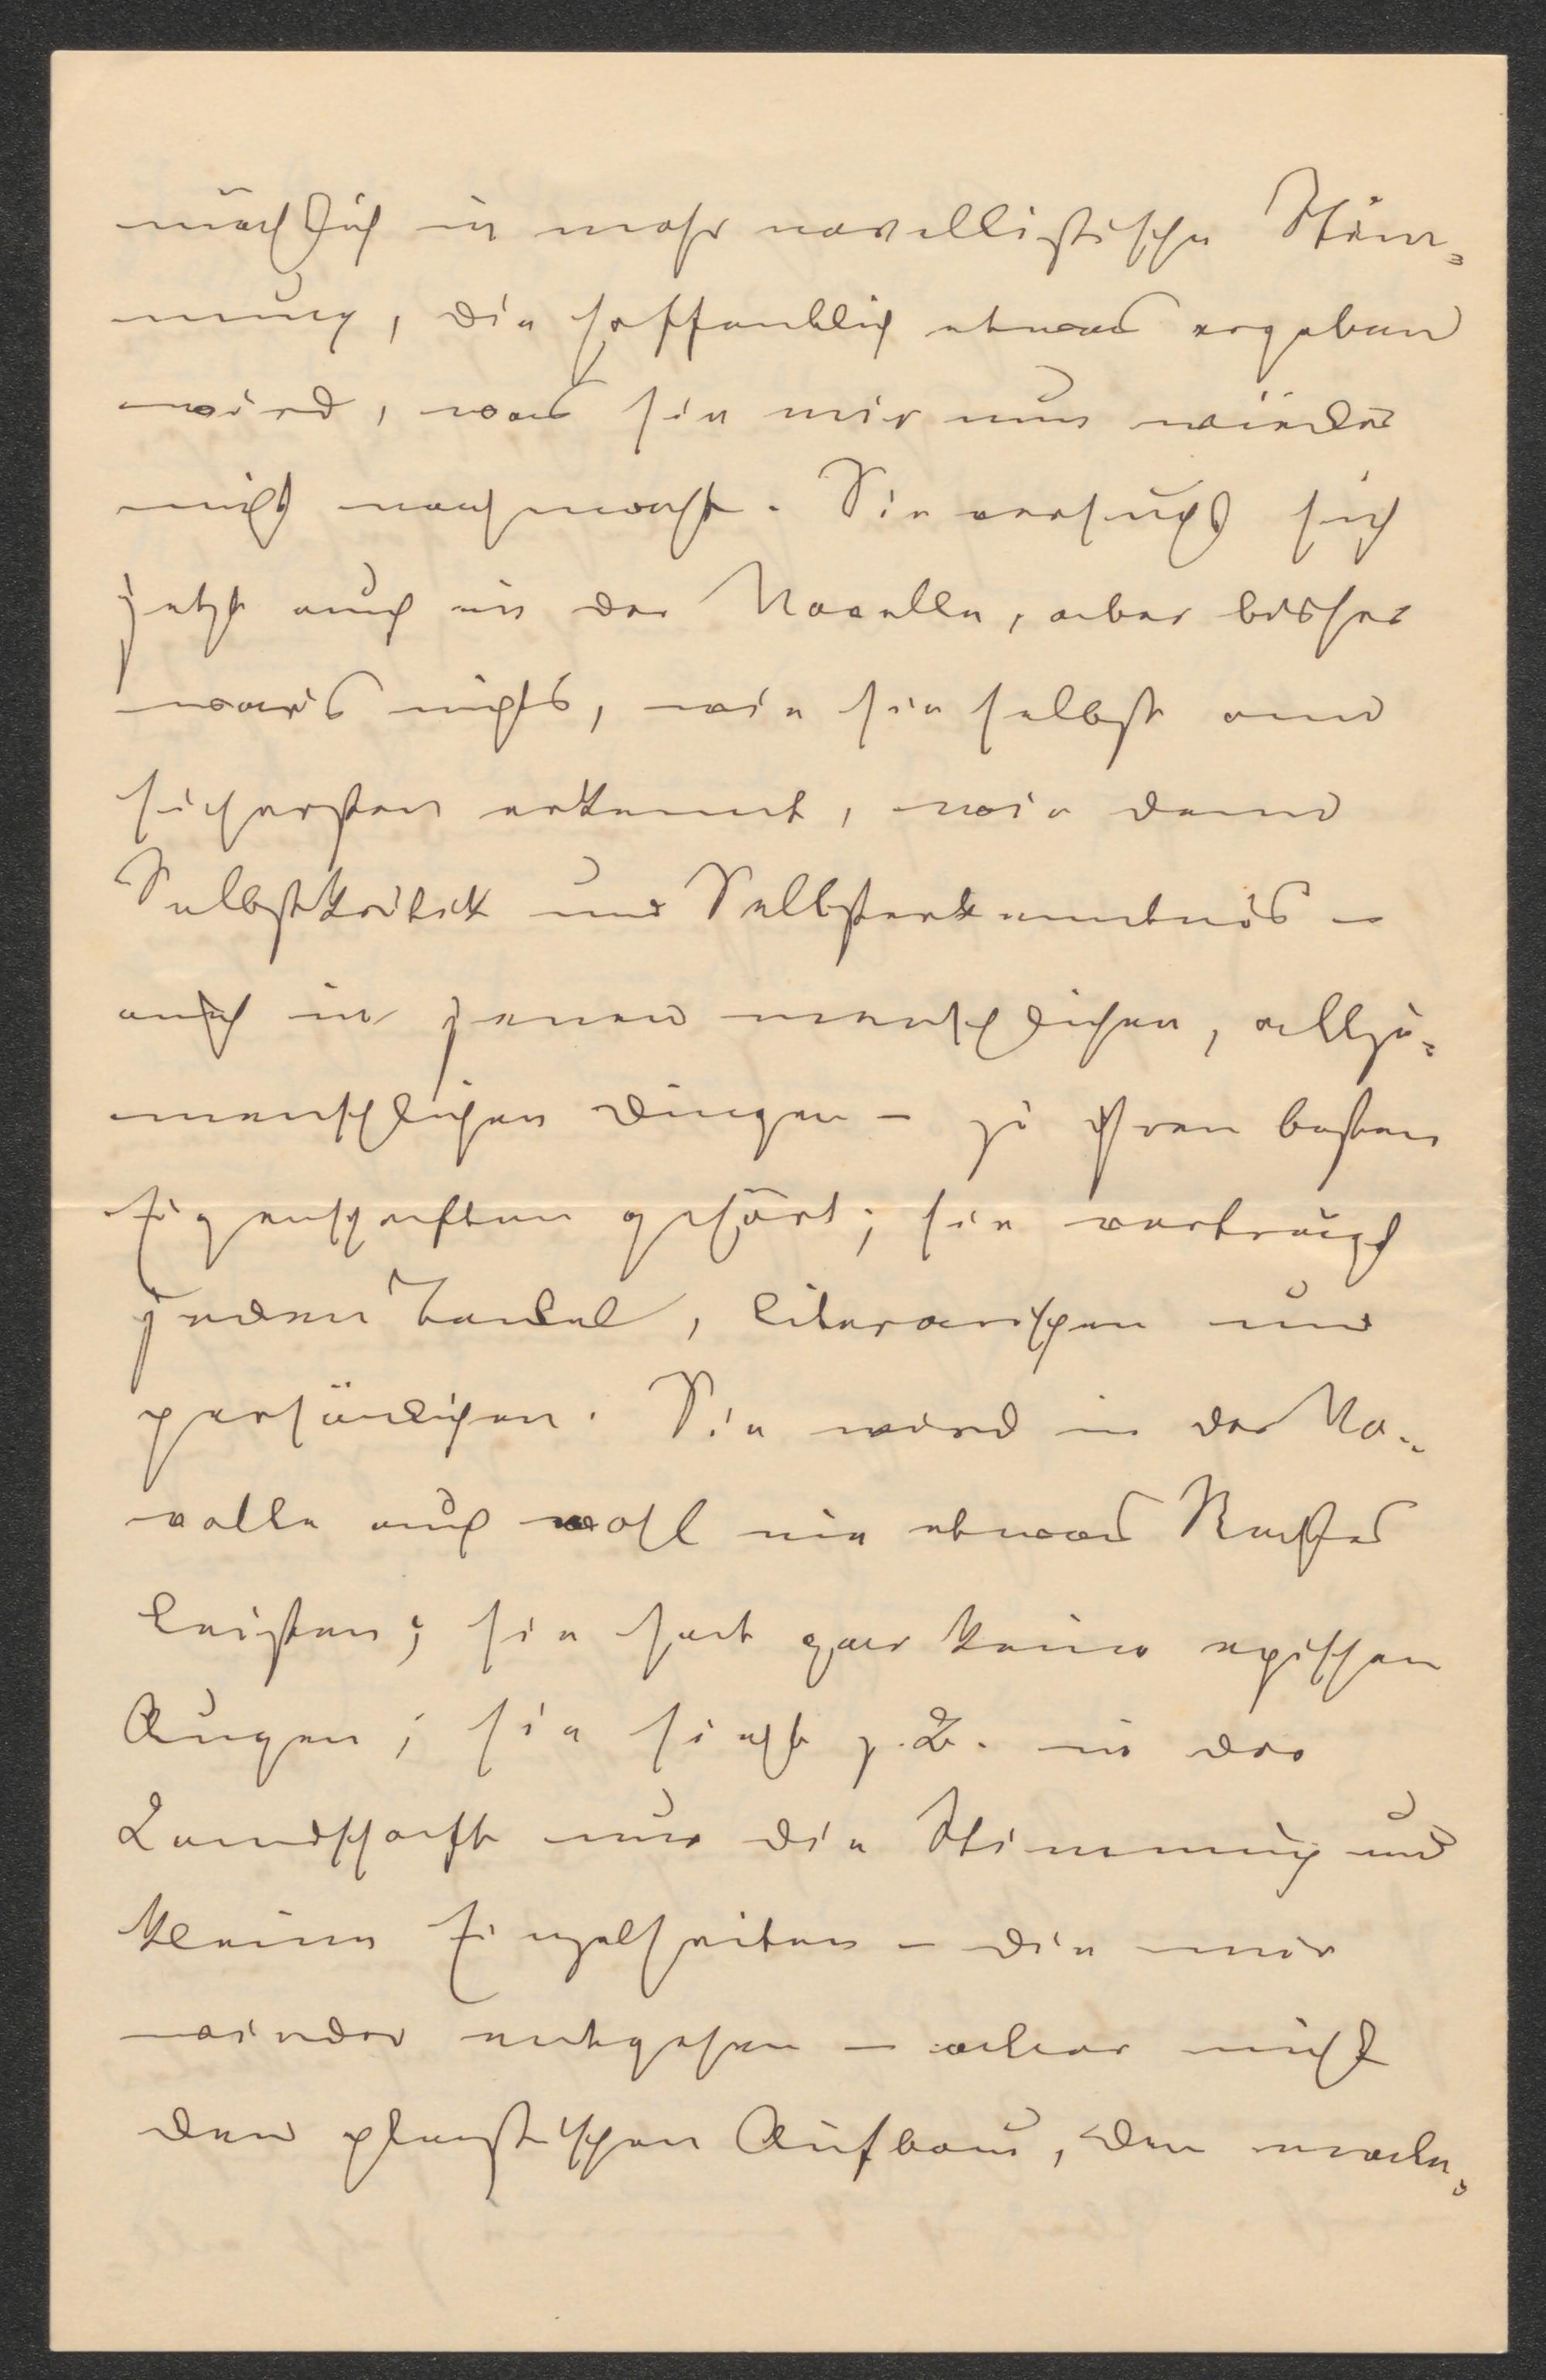 mächlich in mehr novellistische Stim-
mung, die hoffentlich etwas ergeben
wird, was sie mir nun wieder
nicht nachmacht. Sie versucht sich
jetzt auch in der Novelle, aber bisher
war's nichts, wie sie selbst am
sichersten erkennt, wie denn
Selbstkritik und Selbsterkenntnis –
auch in jenen menschlichen, allzu-
menschlichen Dingen – zu ihren besten
Eigenschaften gehört; sie verträgt
jeden Tadel, literarischen und
persönlichen. Sie wird in der No-
velle auch wohl nie etwas Rechtes
leisten; sie hat gar keine epischen
Augen; sie sieht z. B. in der
Landschaft nur die Stimmung und
kleine Einzelheiten – die mir
wieder entgehen – aber nicht
den plastischen Aufbau, den